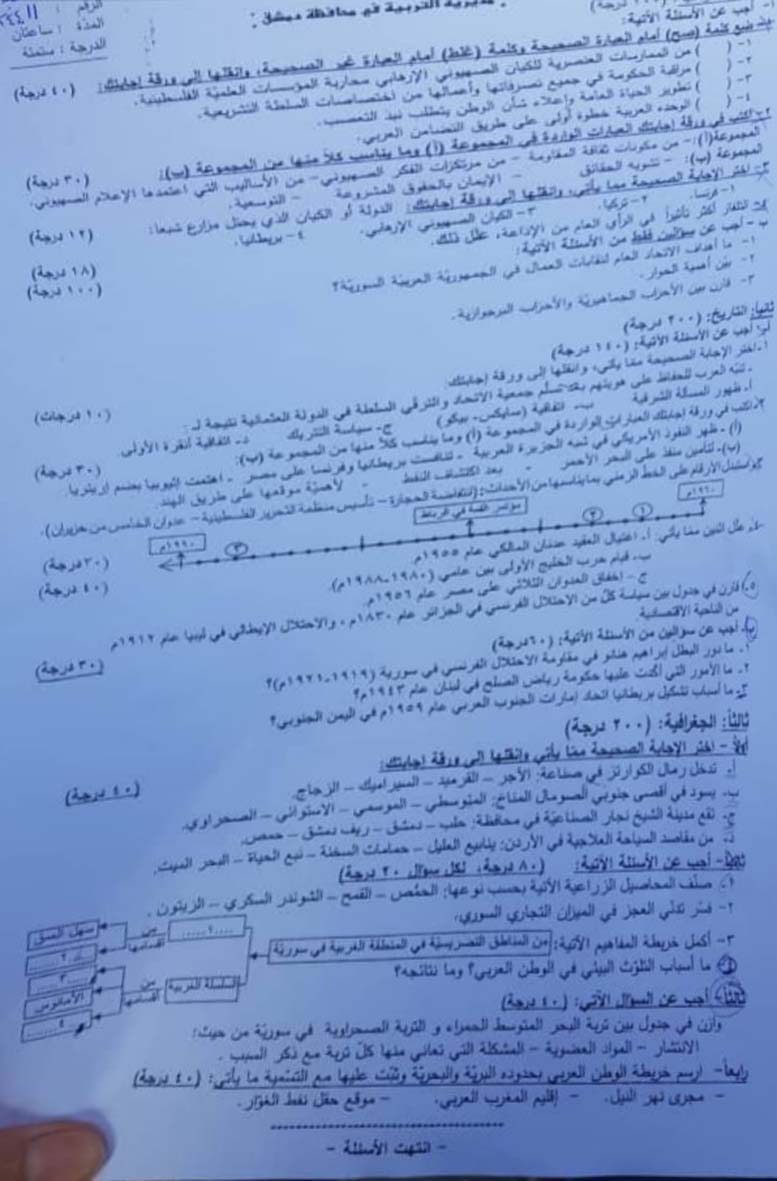 مديرية التربية في محافظة دمشق :
الرقم :
المدة : ساعتان
الدرجة : ستمئة
أجب عن الأسئلة الآتية:
ضع كلمة (صح) أمام العبارة الصحيحة وكلمة (غلط) أمام العبارة غير الصحيحة، وانقلها إلى ورقة إجابتك: (٤٠ درجة)
١- ( ) من الممارسات العنصرية للكيان الصهيوني الإرهابي محاربة المؤسسات العلمية الفلسطينية.
٢- ( ) مراقبة الحكومة في جميع تصرفاتها وأعمالها من اختصاصات السلطة التشريعية.
٣- ( ) تطوير الحياة العامة وإعلاء شأن الوطن يتطلب نبذ التعصب.
٤- ( ) الوحدة العربية خطوة أولى على طريق التضامن العربي.
٢- اكتب في ورقة إجابتك العبارات الواردة في المجموعة (أ) وما يناسب كلاً منها من المجموعة (ب): (٣٠ درجة)
المجموعة (أ): - من مكونات ثقافة المقاومة - من مرتكزات الفكر الصهيوني - من الأساليب التي اعتمدها الإعلام الصهيوني.
المجموعة (ب): - تشويه الحقائق - الإيمان بالحقوق المشروعة - التوسعية.
٣- اختر الإجابة الصحيحة مما يأتي، وانقلها إلى ورقة إجابتك: الدولة أو الكيان الذي يحتل مزارع شبعا: (١٢ درجة)
١- فرنسا. ٢- تركيا. ٣- الكيان الصهيوني الإرهابي. ٤- بريطانيا.
التلفاز أكثر تأثيراً في الرأي العام من الإذاعة، علّل ذلك. (١٨ درجة)
ب- أجب عن سؤالين فقط من الأسئلة الآتية: (١٠٠ درجة)
١- ما أهداف الاتحاد العام لنقابات العمال في الجمهورية العربية السورية؟
٢- بيّن أهمية الحوار.
٣- قارن بين الأحزاب الجماهيرية والأحزاب البرجوازية.
ثانياً: التاريخ: (٢٠٠ درجة)
أجب عن الأسئلة الآتية: (١٤٠ درجة)
١- اختر الإجابة الصحيحة ممّا يأتي، وانقلها إلى ورقة إجابتك: (١٠ درجات)
. تنبّه العرب للحفاظ على هويتهم بعد تسلّم جمعية الاتحاد والترقي السلطة في الدولة العثمانية نتيجة لـ :
أ. ظهور المسألة الشرقية ب- اتفاقية (سايكس- بيكو) ج- سياسة التتريك د- اتفاقية أنقرة الأولى
٢. اكتب في ورقة إجابتك العبارات الواردة في المجموعة (أ) وما يناسب كلاً منها من المجموعة (ب): (٣٠ درجة)
(أ)- ظهر النفوذ الأمريكي في شبه الجزيرة العربية - تنافست بريطانيا وفرنسا على مصر - اهتمت إثيوبيا بضم إريتريا.
(ب)- لتأمين منفذ على البحر الأحمر - بعد اكتشاف النفط - لأهميّة موقعها على طريق الهند.
٣. استبدل الأرقام على الخط الزمني بما يناسبها من الأحداث: (انتفاضة الحجارة - تأسيس منظمة التحرير الفلسطينية - عدوان الخامس من حزيران). (٣٠ درجة)
١٩٦٠م ١ ٢ مؤتمر القمة في الرباط ٣ ١٩٩٠م
علّل اثنين ممّا يأتي: أ. اغتيال العقيد عدنان المالكي عام ١٩٥٥م (٤٠ درجة)
ب. قيام حرب الخليج الأولى بين عامي (١٩٨٠-١٩٨٨م).
ج - إخفاق العدوان الثلاثي على مصر عام ١٩٥٦م.
٥. قارن في جدول بين سياسة كلّ من الاحتلال الفرنسي في الجزائر عام ١٨٣٠م ، والاحتلال الإيطالي في ليبيا عام ١٩١٢م
من الناحية الاقتصادية. (٣٠ درجة)
ب. أجب عن سؤالين من الأسئلة الآتية: (٦٠ درجة)
١. ما دور البطل إبراهيم هنانو في مقاومة الاحتلال الفرنسي في سورية (١٩١٩-١٩٢١م)؟
٢. ما الأمور التي أكدت عليها حكومة رياض الصلح في لبنان عام ١٩٤٣م؟
٣. ما أسباب تشكيل بريطانيا اتحاد إمارات الجنوب العربي عام ١٩٥٩م في اليمن الجنوبي؟
ثالثاً: الجغرافية: (٢٠٠ درجة)
أولاً - اختر الإجابة الصحيحة ممّا يأتي وانقلها إلى ورقة إجابتك: (٤٠ درجة)
أ. تدخل رمال الكوارتز في صناعة: الآجر - القرميد - السيراميك - الزجاج.
ب. يسود في أقصى جنوبي الصومال المناخ: المتوسطي - الموسمي - الاستوائي - الصحراوي.
ج. تقع مدينة الشيخ نجار الصناعيّة في محافظة: حلب - دمشق - ريف دمشق - حمص.
د. من مقاصد السياحة العلاجية في الأردن: ينابيع العليل - حمامات السخنة - نبع الحياة - البحر الميت.
ثانياً- أجب عن الأسئلة الآتية: (٨٠ درجة، لكل سؤال ٢٠ درجة)
١. صنّف المحاصيل الزراعية الآتية بحسب نوعها: الحمّص - القمح - الشوندر السكري - الزيتون .
٢- فسّر تدنّي العجز في الميزان التجاري السوري.
٣- أكمل خريطة المفاهيم الآتية: من المناطق التضريسيّة في المنطقة الغربية في سوريّة
.....١..... من أقسامها سهل الغاب
.....٢.....
السلسلة الغربية من أقسامها .....٣.....
الأمانوس
.....٤.....
٤ ما أسباب التلوّث البيئي في الوطن العربي؟ وما نتائجه؟
ثالثاً- أجب عن السؤال الآتي: (٤٠ درجة)
وازن في جدول بين تربة البحر المتوسط الحمراء و التربة الصحراوية في سوريّة من حيث:
الانتشار - المواد العضوية - المشكلة التي تعاني منها كلّ تربة مع ذكر السبب .
رابعاً- ارسم خريطة الوطن العربي بحدوده البريّة والبحريّة وثبّت عليها مع التسمية ما يأتي: (٤٠ درجة)
- مجرى نهر النيل. - إقليم المغرب العربي. - موقع حقل نفط الغوّار.
- انتهت الأسئلة -